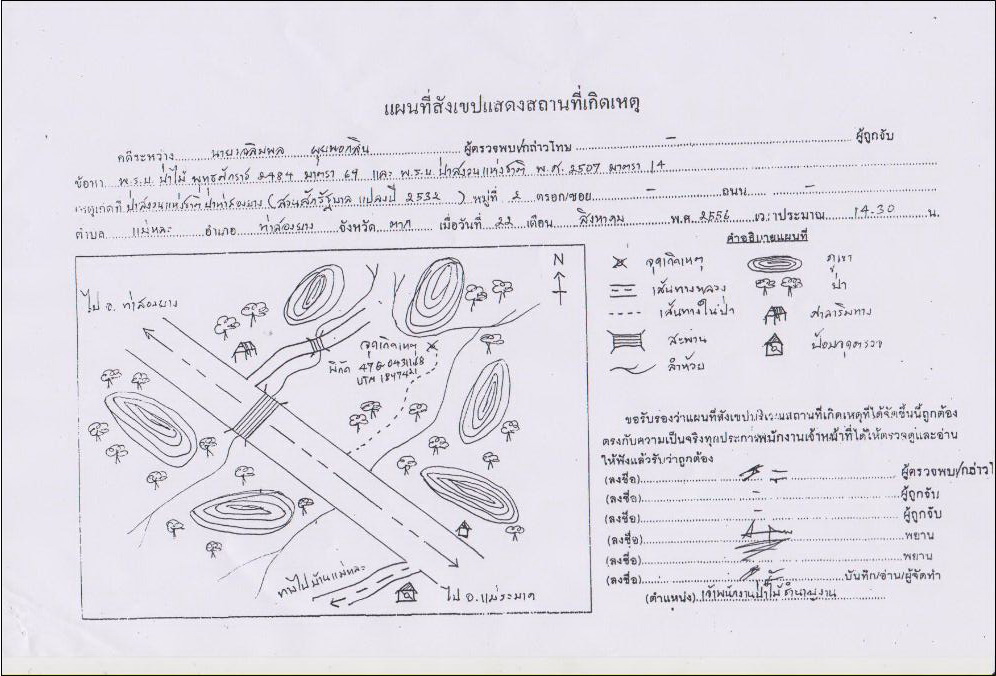 แผนที่สังเขปแสดงสถานที่เกิดเหตุ
คดีระหว่าง นายเฉลิมพล ผู้ตรวจพบ/กล่าวโทษ - ผู้ถูกจับ
ข้อหา พ.ร.บ. ป่าไม้ พุทธศักราช 2484 มาตรา 69 และ พ.ร.บ. ป่าสงวนแห่งชาติ พ.ศ. 2507 มาตรา 14
เหตุเกิดที่ ป่าสงวนแห่งชาติ ป่าท่าสองยาง (สวนสักรัฐบาล แปลงปี 2532) หมู่ที่ 2 ตรอก/ซอย - ถนน -
ตำบล แม่หละ อำเภอ ท่าสองยาง จังหวัด ตาก เมื่อวันที่ 22 เดือน สิงหาคม พ.ศ. 2556 เวลาประมาณ 14.30 น.
คำอธิบายแผนที่
จุดเกิดเหตุ
ภูเขา
เส้นทางหลวง
ป่า
เส้นทางในป่า
ศาลาริมทาง
สะพาน
ป้อมจุดตรวจ
ลำห้วย
N
ไป อ. ท่าสองยาง
จุดเกิดเหตุ
พิกัด 47Q 0431168
UTM 1897421
ทางไปบ้านแม่หละ
ไป อ.แม่ระมาด
ขอรับรองว่าแผนที่สังเขปบริเวณสถานที่เกิดเหตุที่ได้จัดขึ้นนี้ถูกต้อง
ตรงกับความเป็นจริงทุกประการพนักงานเจ้าหน้าที่ได้ให้ตรวจดูและอ่าน
ให้ฟังแล้วรับว่าถูกต้อง
(ลงชื่อ) ผู้ตรวจพบ/กล่าวโ
(ลงชื่อ) - ผู้ถูกจับ
(ลงชื่อ) - ผู้ถูกจับ
(ลงชื่อ) พยาน
(ลงชื่อ) พยาน
(ลงชื่อ) บันทึก/อ่าน/ผู้จัดทำ
(ตำแหน่ง) เจ้าพนักงานป่าไม้ชำนาญงาน